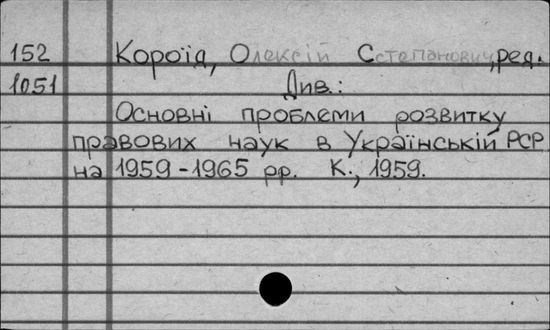 152 Короїд, Олексій Сстепанович, ред.
1051 Див.:
Основні проблеми розвитку
правових наук в Українській РСР
на 1959-1965 рр. К., 1959.